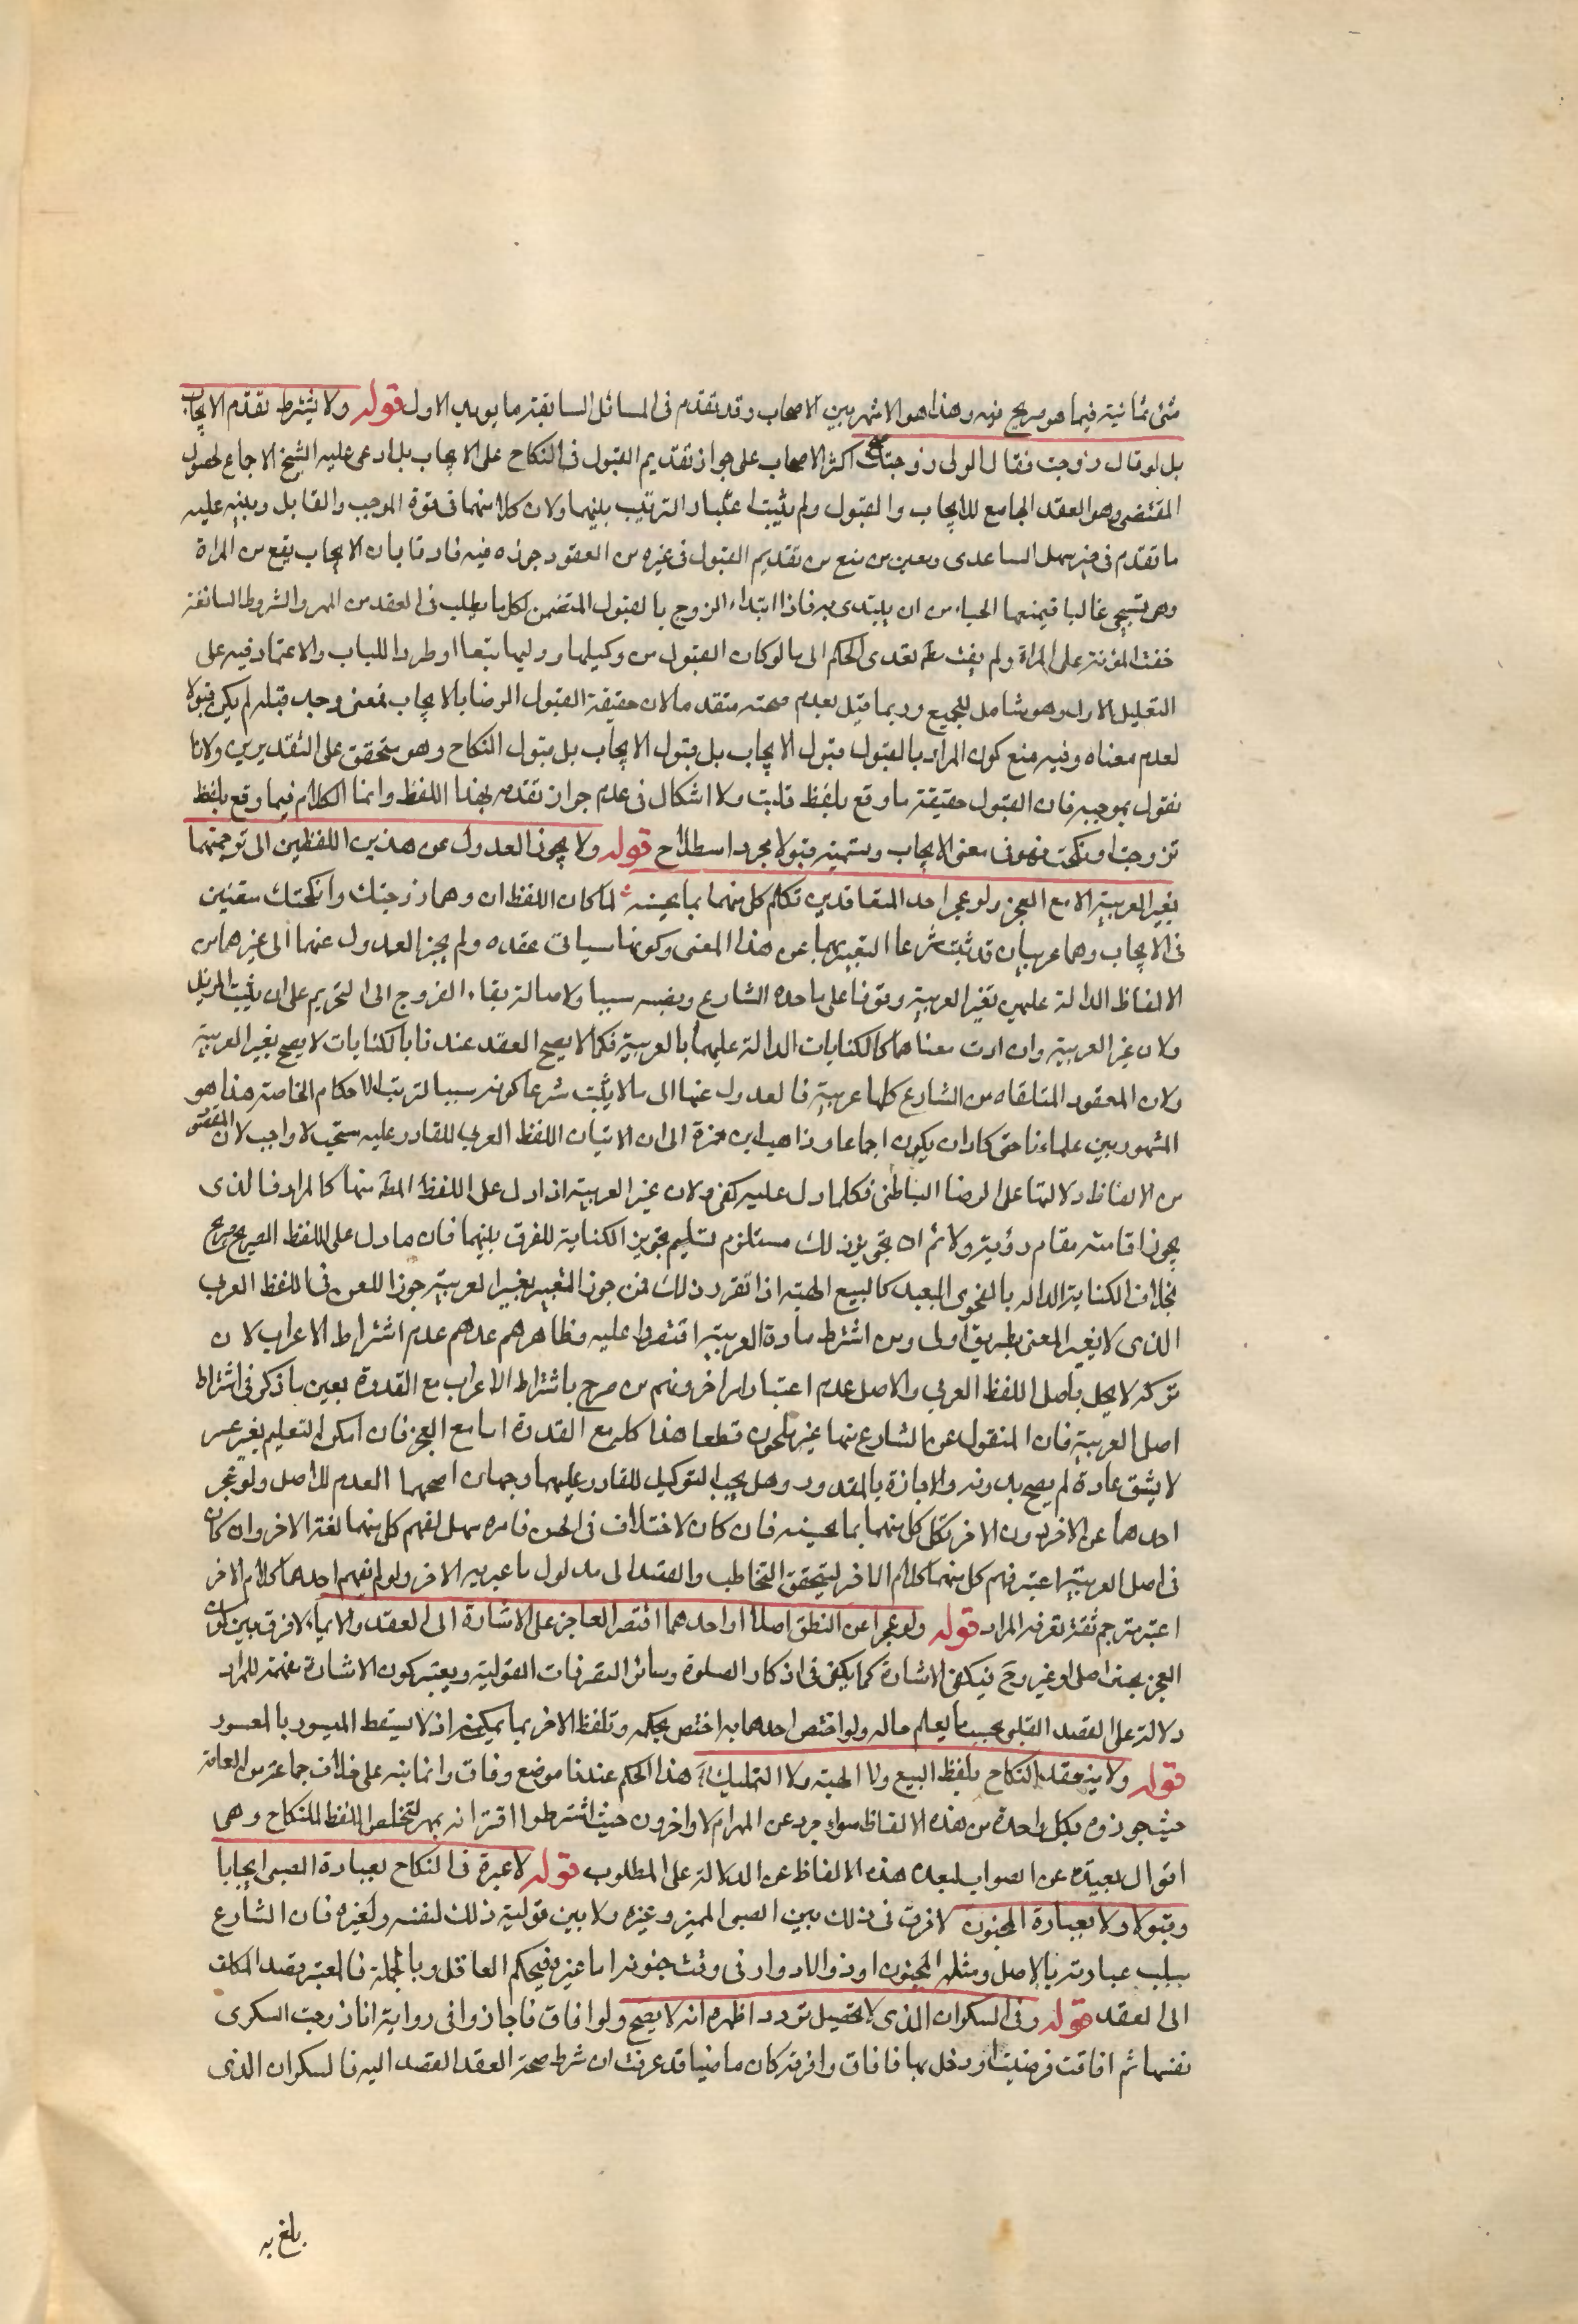 شئ ثانيته فيما هو صريح فيه وهذا هو الاشهر بين الاصحاب وقد تقدم فى المسائل السابقة ما يويد الاول قوله ولا يشترط تقدم الايجاب
بل لو قال زوجت فقال الولى زوجتك اكثر الاصحاب على جواز تقديم القبول فى النكاح على الايجاب بل ادعى عليه الشيخ الاجماع لحصول
المقتضى وهو العقد الجامع للايجاب والقبول ولم يثبت اعتبار الترتيب بينهما ولان كلا منهما فى قوة الموجب والقابل وينبه عليه
ما تقدم فى خبر سهل الساعدى وبعض من منع من تقديم القبول فى غيره من العقود جوزه فيه فارقا بان الايجاب يقع من المراة
وهى تستحيى غالبا فيمنعها الحياء من ان يبتدى به فاذا ابتداء الزوج بالقبول المتضمن لكل ما يطلب فى العقد من المهر والشروط السائغة
خفت المؤنة على المراة ولم يفت تعدى الحكم الى ما لو كان القبول من وكيلها ووليها تبعا او طردا للباب والاعتماد فيه على
التعليل الاول وهو شامل للجميع وربما قيل بعدم صحته متقدما لان حقيقة القبول الرضا بالايجاب فمتى وجد قبله لم يكن قبولا
لعدم معناه وفيه منع كون المراد بالقبول قبول الايجاب بل قبول الايجاب بل قبول النكاح وهو متحقق على التقديرين ولانا
نقول بموجبه فان القبول حقيقة ما وقع بلفظ قبلت ولا اشكال فى عدم جواز تقدمه بهذا اللفظ وانما الكلام فيما وقع بلفظ
تزوجت او نكحت فهو فى معنى الايجاب وتسميته قبولا مجرد اصطلاح قوله ولا يجوز العدول عن هذين اللفظين الى ترجمتهما
بغير العربية الا مع العجز ولو عجز احد المتعاقدين تكلم كل منهما بما يحسنه لما كان اللفظان وهما زوجتك وانكحتك متعينين
فى الايجاب وهما عربيان قد ثبت شرعا التعبير بهما عن هذا المعنى وكونهما سببا فى عقده ولم يجز العدول عنهما الى غيرهما من
الالفاظ الدالة عليهن بغير العربية وقوفا على ما حده الشارع ونصبه سببا ولاصالة بقاء الفروج الى التحريم على ان يثبت المزيل
ولان غير العربية وان ادت معناهما كالكنايات الدالة عليهما بالعربية فكما لا يصح العقد عندنا بالكنايات لا يصح بغير العربية
ولان العقود المتلقاه من الشارع كلها عربية فالعدول عنها الى ما لا يثبت شرعا كونه سببا لترتب الاحكام الخاصة هذا هو
المشهور بين علماءنا حتى كاد ان يكون اجماعا وذاهب ابن حمزة الى ان الاتيان اللفظ العربى للقادر عليه مستحب لا واجب لان المقصود
من الالفاظ دلالتها على الرضا الباطنى فكلما دل عليه كفى ولان غير العربية اذا دل على اللفظ المط منها كالمرادف الذى
يجوز اقامته مقام رديفه ولا ثم ان تجويز ذلك مستلزم لتسليم تجويز الكناية للفرق بينهما فان ما دل على اللفظ الصريح صريح
بخلاف الكناية الدالة بالفحوى البعيد كالبيع الهبة اذا تقرر ذلك فمن جوز التعبير بغير العربية جوز اللحن فى اللفظ العربى
الذى لا يغير المعنى بطريق اولى ومن اشترط مادة العربية اقتصر عليه وظاهرهم عدهم عدم اشتراط الاعراب لان
تركه لا يخل باصل اللفظ العربى والاصل عدم اعتبار امر اخر ومنهم من صرح باشتراط الاعراب مع القدرة بعين ما ذكر فى اشتراط
اصل العربية فان المنقول عن الشارع منها غير ملحون قطعا هذا كله مع القدرة اما مع العجز فان امكن التعليم بغير عسر
لا يشق عادة لم يصح بدونه والا جازة بالمقدور وهل يجب التوكيل للقادر عليهما وجهان اصحهما العدم للاصل ولو عجز
احدهما عن الاخر دون الاخر تكلم كل منهما بما يحسنه فان كان لاختلاف فى اللحن فامره سهل لفهم كل منهما لغة الاخر وان كان
فى اصل العربية اعتبر فهم كل منهما كلام الاخر ليتحقق التخاطب والقصد الى مدلول ما عبر به الاخر ولو لم يفهم احدهما كلام الاخر
اعتبر مترجم ثقة يعرفه المراد قوله ولو عجزا عن النطق اصلا او احدهما اقتصر العاجز على الاشارة الى العقد والايماء لا فرق بين كون
العجز اصلى او غير وح فيكفى الاشارة كما يكفى فى اذكار الصلوة وسائر التصرفات القولية ويعتبر كون الاشارة مفهمة للمراد
دلالة على القصد القلبى بحسب ما يعلم حاله ولو اختص احدهما به اختص بحكمه وتلفظ الاخر بما يمكنه اذ لا يسقط الميسور بالمعسور
قوله ولا ينعقد النكاح بلفظ البيع ولا الهبة ولا التمليك هذا الحكم عندنا موضع وفاق وانما نبه على خلاف جماعة من العامة
حيث جوزوه بكل واحدة من هذه الالفاظ سواء جرد عن المهر ام لا واخرون حيث اشترطوا اقترانه بمهر لتخلص اللفظ للنكاح وهى
اقوال بعيده عن الصواب لبعد هذه الالفاظ عن الدلالة على المطلوب قوله لا عبرة فى النكاح بعبارة الصبى ايجابا
وقبولا ولا بعبارة المجنون لا فرق فى ذلك بين الصبى المميز وغيره ولا بين توليته ذلك لنفسه ولغيره فان الشارع
سلب عبارته بالاصل ومثله المجنون او ذو الادوار فى وقت جنونه اما غيره فبحكم العاقل وبالجملة فالمعتبر قصد المكلف
الى العقد قوله وفى السكران الذى لا يحصل تردد اظهره انه لا يصح ولو افاق فاجاز وفى رواية اذا زوجت السكرى
نفسها ثم افاقت فرضيت او دخل بها فافاق واقرته كان ماضيا قد عرفت ان شرط صحة العقد القصد اليه فالسكران الذى
بلغ به